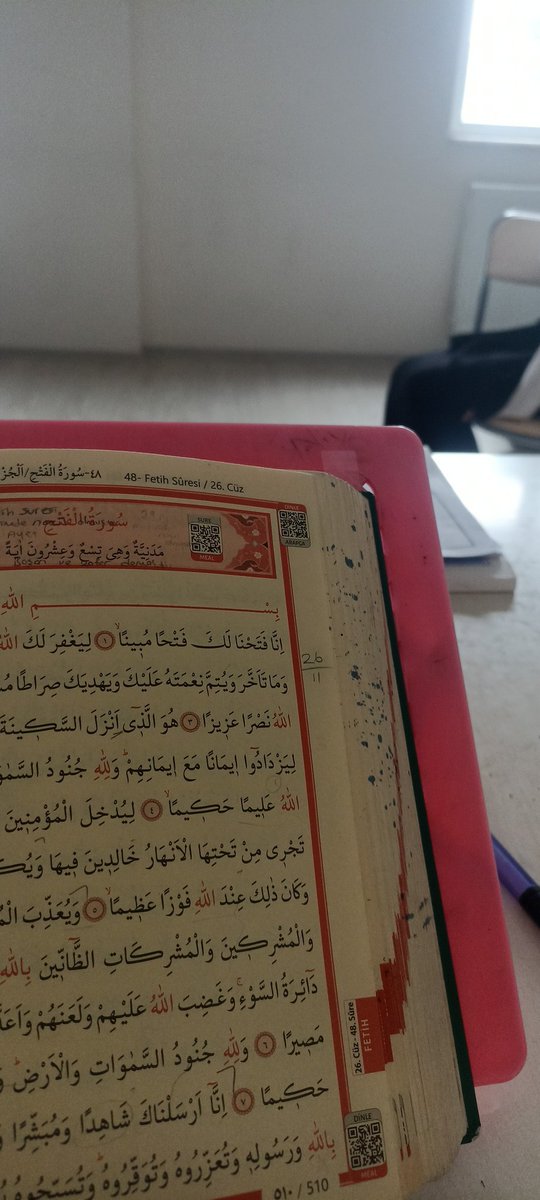 ٤٨-سُورَةُ الْفَتْحِ/اَلْجُزْ
48- Fetih Sûresi / 26. Cüz
DİNLE
ARAPÇA
SURE
MEAL
سُورَةُ الْفَتْحِ
مَدَنِيَّةٌ وَهِيَ تِسْعٌ وَعِشْرُونَ اٰيَةً
بِسْــــمِ اللّٰهِ
اِنَّا فَتَحْنَا لَكَ فَتْحًا مُبٖينًاۙ ﴿١﴾ لِيَغْفِرَ لَكَ اللّٰهُ
26
11
وَمَا تَاَخَّرَ وَيُتِمَّ نِعْمَتَهُ عَلَيْكَ وَيَهْدِيَكَ صِرَاطًا
اللّٰهُ نَصْرًا عَزٖيزًا ﴿٣﴾ هُوَ الَّذٖٓي اَنْزَلَ السَّكٖينَةَ
لِيَزْدَادُٓوا اٖيمَانًا مَعَ اٖيمَانِهِمْؕ وَلِلّٰهِ جُنُودُ
اللّٰهُ عَلٖيمًا حَكٖيمًاۙ ﴿٤﴾ لِيُدْخِلَ الْمُؤْمِنٖينَ
تَجْرٖي مِنْ تَحْتِهَا الْاَنْهَارُ خَالِدٖينَ فٖيهَا
وَكَانَ ذٰلِكَ عِنْدَ اللّٰهِ فَوْزًا عَظٖيمًاۙ ﴿٥﴾ وَيُعَذِّبَ
وَالْمُشْرِكٖينَ وَالْمُشْرِكَاتِ الظَّٓانّٖينَ بِاللّٰهِ
دَٓائِرَةُ السَّوْءِۚ وَغَضِبَ اللّٰهُ عَلَيْهِمْ وَلَعَنَهُمْ وَاَعَدَّ
مَصٖيرًا ﴿٦﴾ وَلِلّٰهِ جُنُودُ السَّمٰوَاتِ وَالْاَرْضِؕ
حَكٖيمًا ﴿٧﴾ اِنَّٓا اَرْسَلْنَاكَ شَاهِدًا وَمُبَشِّرًا
بِاللّٰهِ وَرَسُولِهٖ وَتُعَزِّرُوهُ وَتُوَقِّرُوهُؕ وَتُسَبِّحُوهُ
26. Cüz - 48. Sûre
FETİH
DİNLE
MEAL
٥١٠ / 510